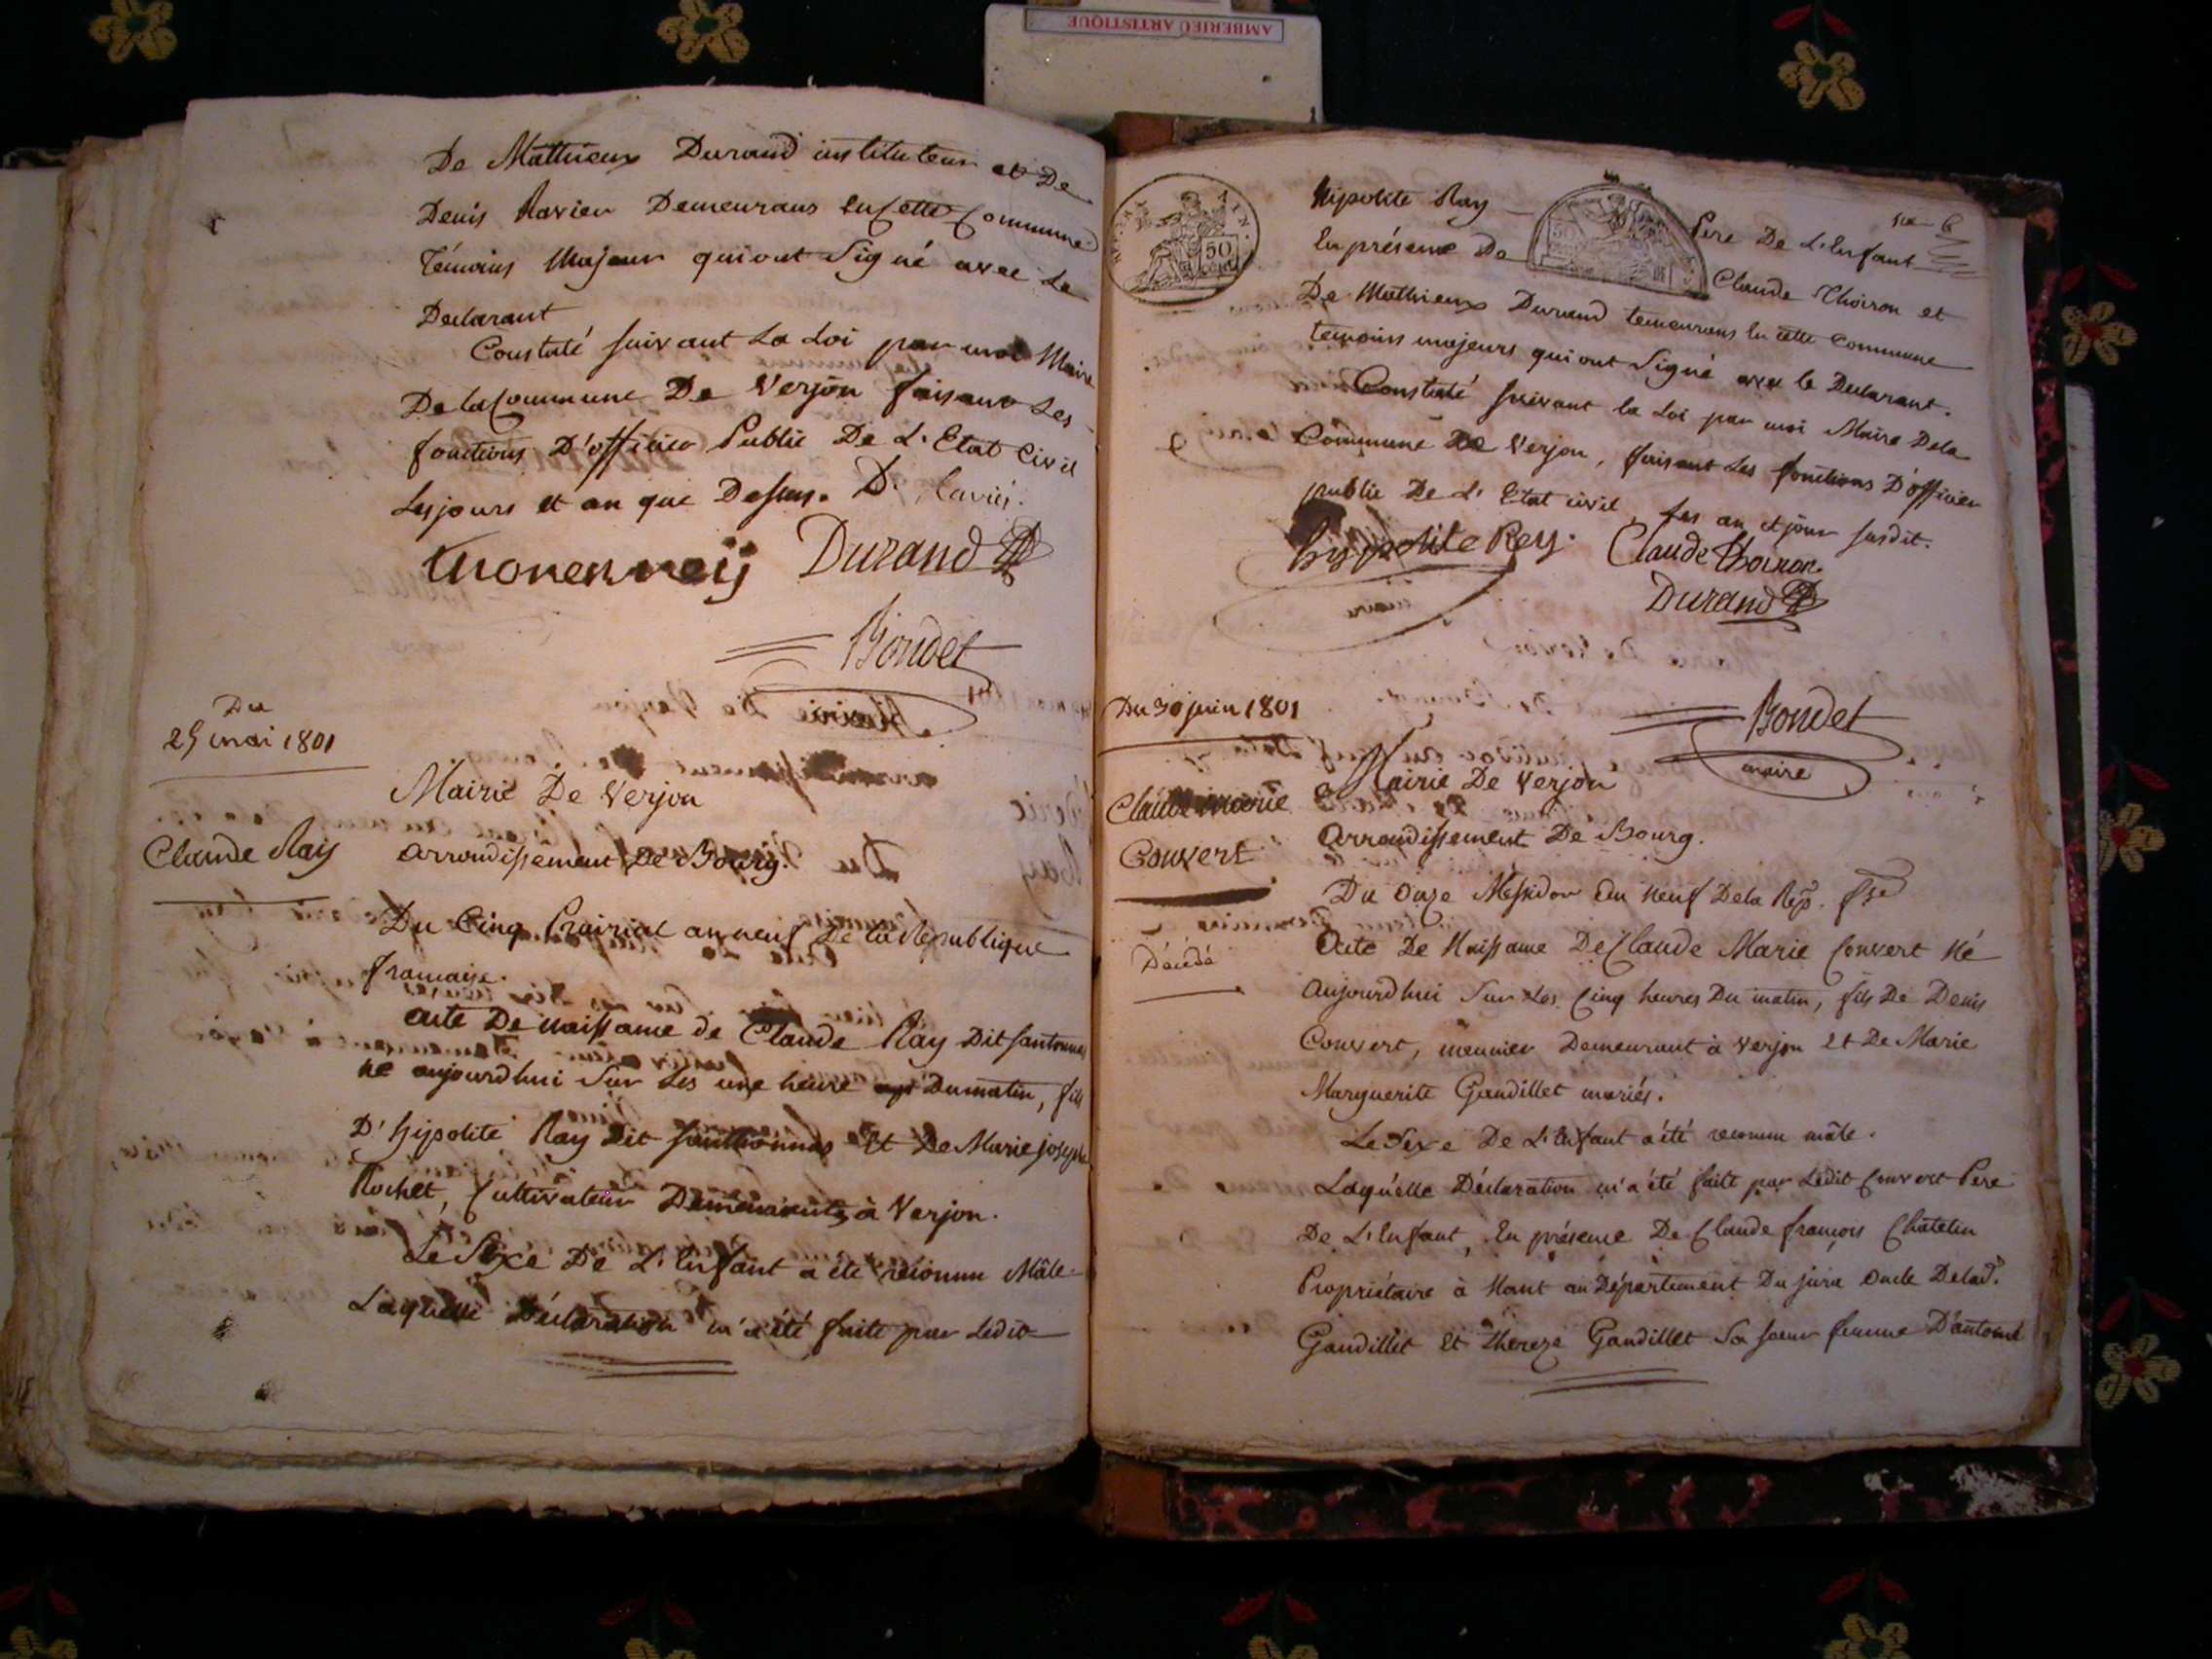 AMBERIEU ARTISTIQUE
De Mathieux Durand instituteur et De
Denis Ravier Demeurans en cette Commune
Témoins Majeur qui ont Signé avec Le
Declarant
Constaté suivant La Loi par moi Maire
De la Commune De Verjon faisant Les
fonctions D'officier Public De L'Etat Civil
Les jours et an que Dessus. D. Ravier.
Durand
Bondet
Du
25 mai 1801
Mairie De Verjon
Claude Ray
Arrondissement De Bourg.
Du Cinq Prairial an neuf De la République
francaise.
Acte De naissance de Claude Ray Dit
né aujourdhui Sur Les une heure Dumatin, fils
D'hipolite Ray Dit Et De Marie josephe
Rochet, Cultivateur Demeurants à Verjon.
Le Sexe De L'Enfant a été reconnu Mâle
Laquelle Déclaration m'a été faite par Ledit
hipolite Ray Pere De L'Enfant
En présence De Claude Thoiron et
De Mathieux Durand temeurans En cette Commune
temoins majeurs qui ont Signé avec le Declarant.
Constaté suivant la Loi par moi Maire Dela
Commune De Verjon, faisant Les fonctions D'officier
public De L'Etat civil, Les an et jour susdit.
hyppolite Rey. Claude Thoiron.
Durand
Du 30 juin 1801
Bondet
maire
Mairie De Verjon
Claude marie
Convert
Arrondissement De Bourg.
Du Onze Messidor an neuf Dela Rep. fse
Décédé
Acte De Naissance De Claude Marie Convert né
Aujourdhui Sur Les Cinq heures Du matin, fils De Denis
Convert, meunier Demeurant à Verjon et De Marie
Marguerite Gaudillet mariés.
Le Sexe De L'Enfant a été reconnu mâle.
Laquelle Déclaration m'a été faite par Ledit Convert Pere
De L'Enfant, En présence De Claude françois Chatelin
Propriétaire à au Département Du jura Oncle Delad.
Gaudillet et Thereze Gaudillet Sa soeur femme D'antoine